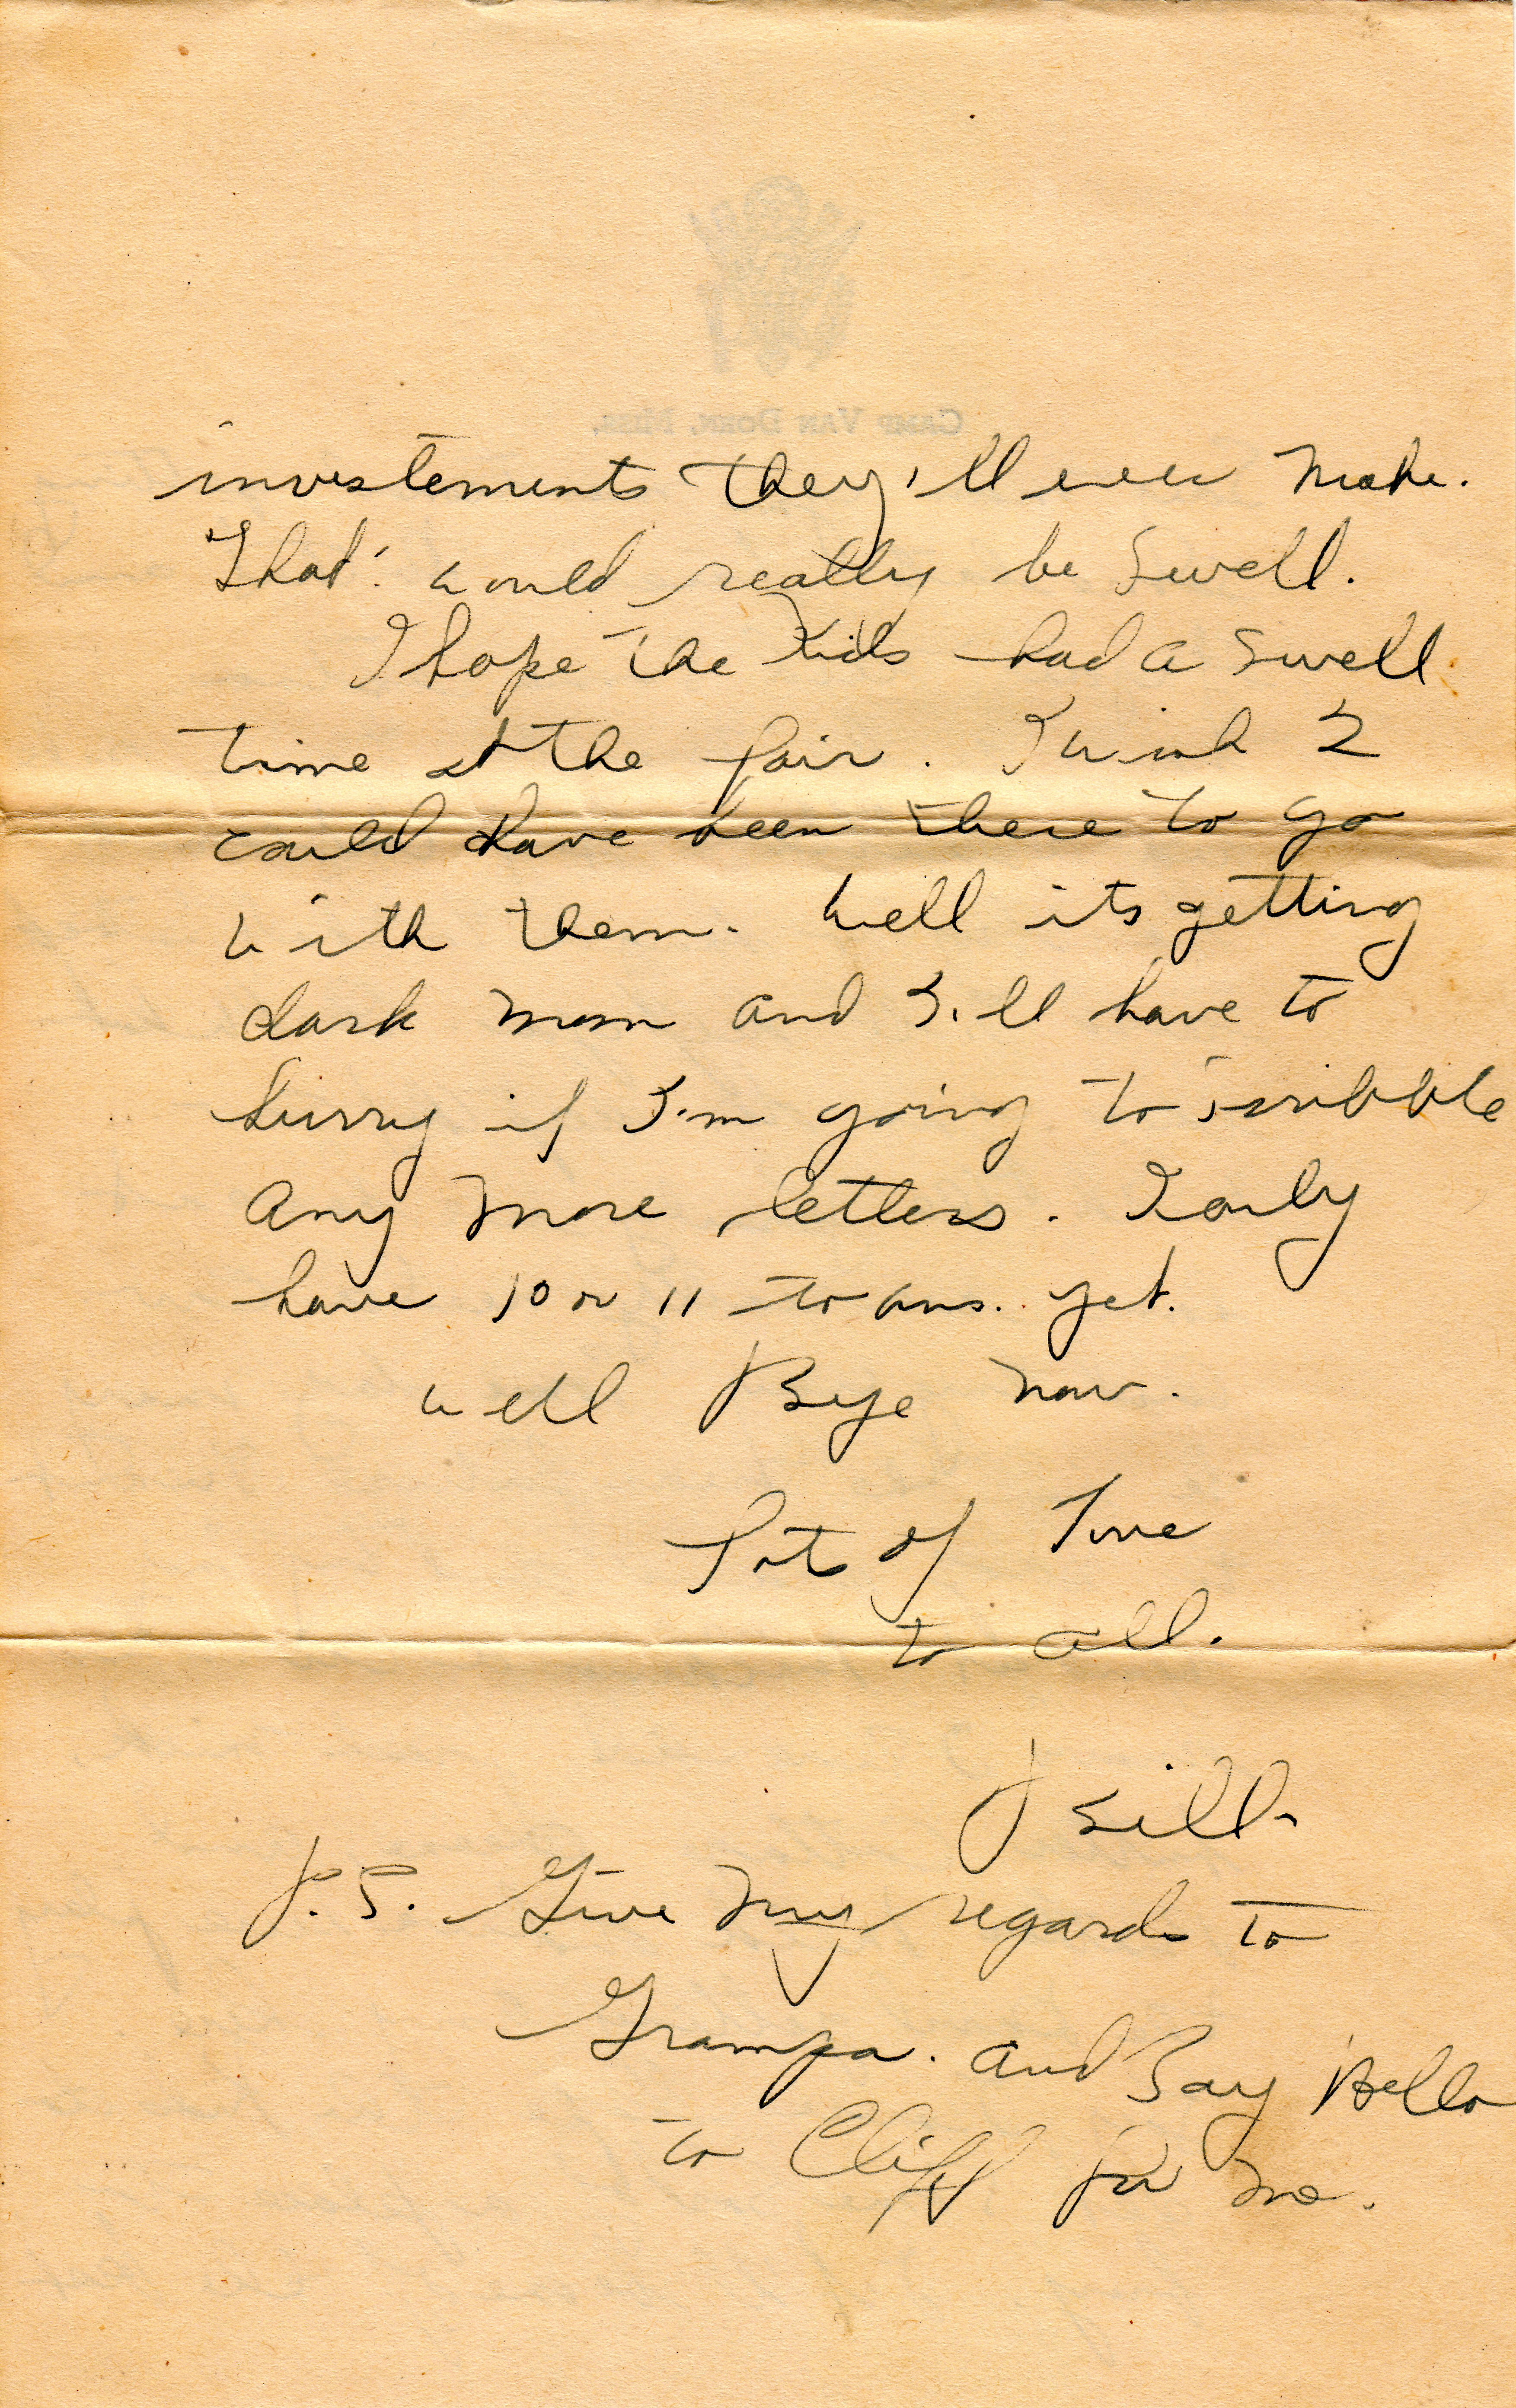 CAMP VAN DORN, MISS.
investements they'll ever make.
That would really be swell.
I hope the kids had a swell
time at the fair. I wish I
could have been there to go
with them. Well its getting
dark mom and I'll have to
hurry if I'm going to scribble
any more letters. I only
have 10 or 11 to ans. yet.
well Bye now.
Lots of Love
to all.
Bill
P.S. Give my regards to
Grampa. and Say Hello
to Cliff for me.